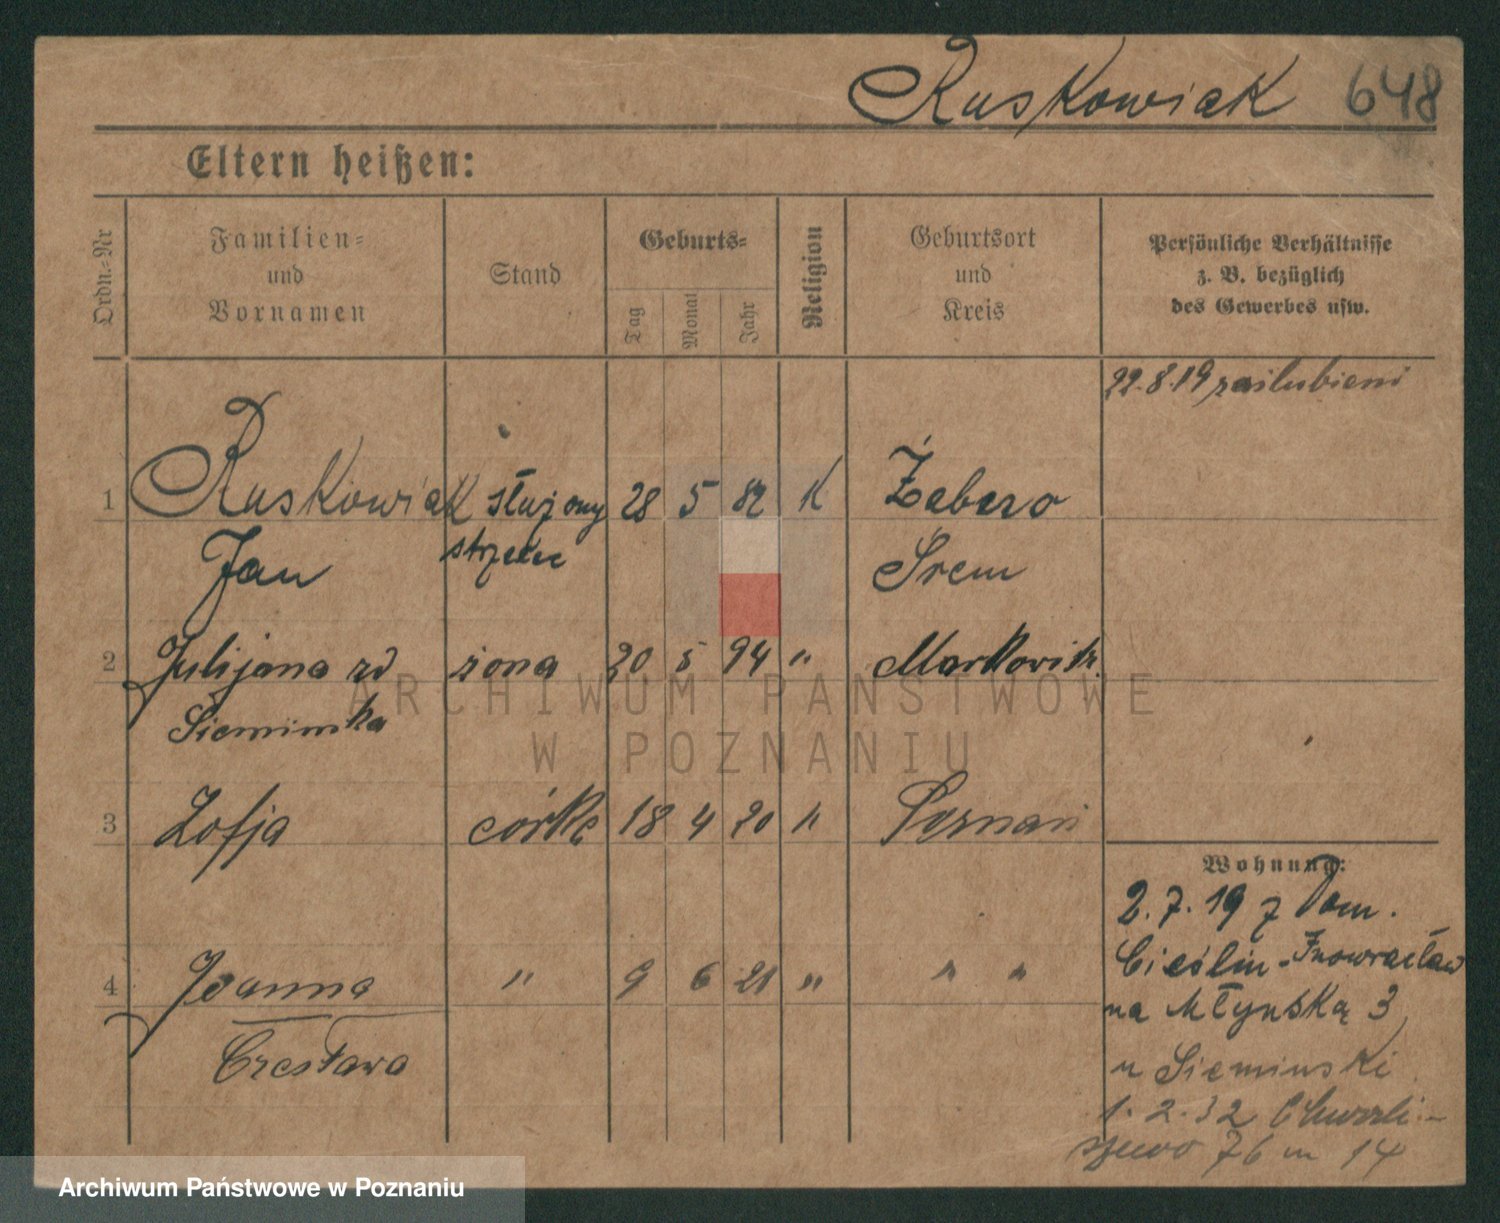 Ruskowiak 648
Eltern heißen:
Ordn.-Nr
Familien-
und
Vornamen
Stand
Geburts-
Tag
Monat
Jahr
Religion
Geburtsort
und
Kreis
Persönliche Verhältnisse
z. B. bezüglich
des Gewerbes usw.
22.8.19 zaślubieni
1 Ruskowiak służący 28 5 82 K Żabno
Jan strzelec Śrem
2 Julijana zd żona 20 5 94 " Markowitz
Siemińska
3 Zofja córka 18 4 20 " Poznań
4 Joanna " 9 6 21 " " "
Czesława
Wohnung:
2.7.19 z Dom.
Cieślin - Inowrocław
na Młyńską 3
u Sieminski
1.2.32 Chwali-
szewo 76 m 14
ARCHIWUM PAŃSTWOWE
W POZNANIU
Archiwum Państwowe w Poznaniu